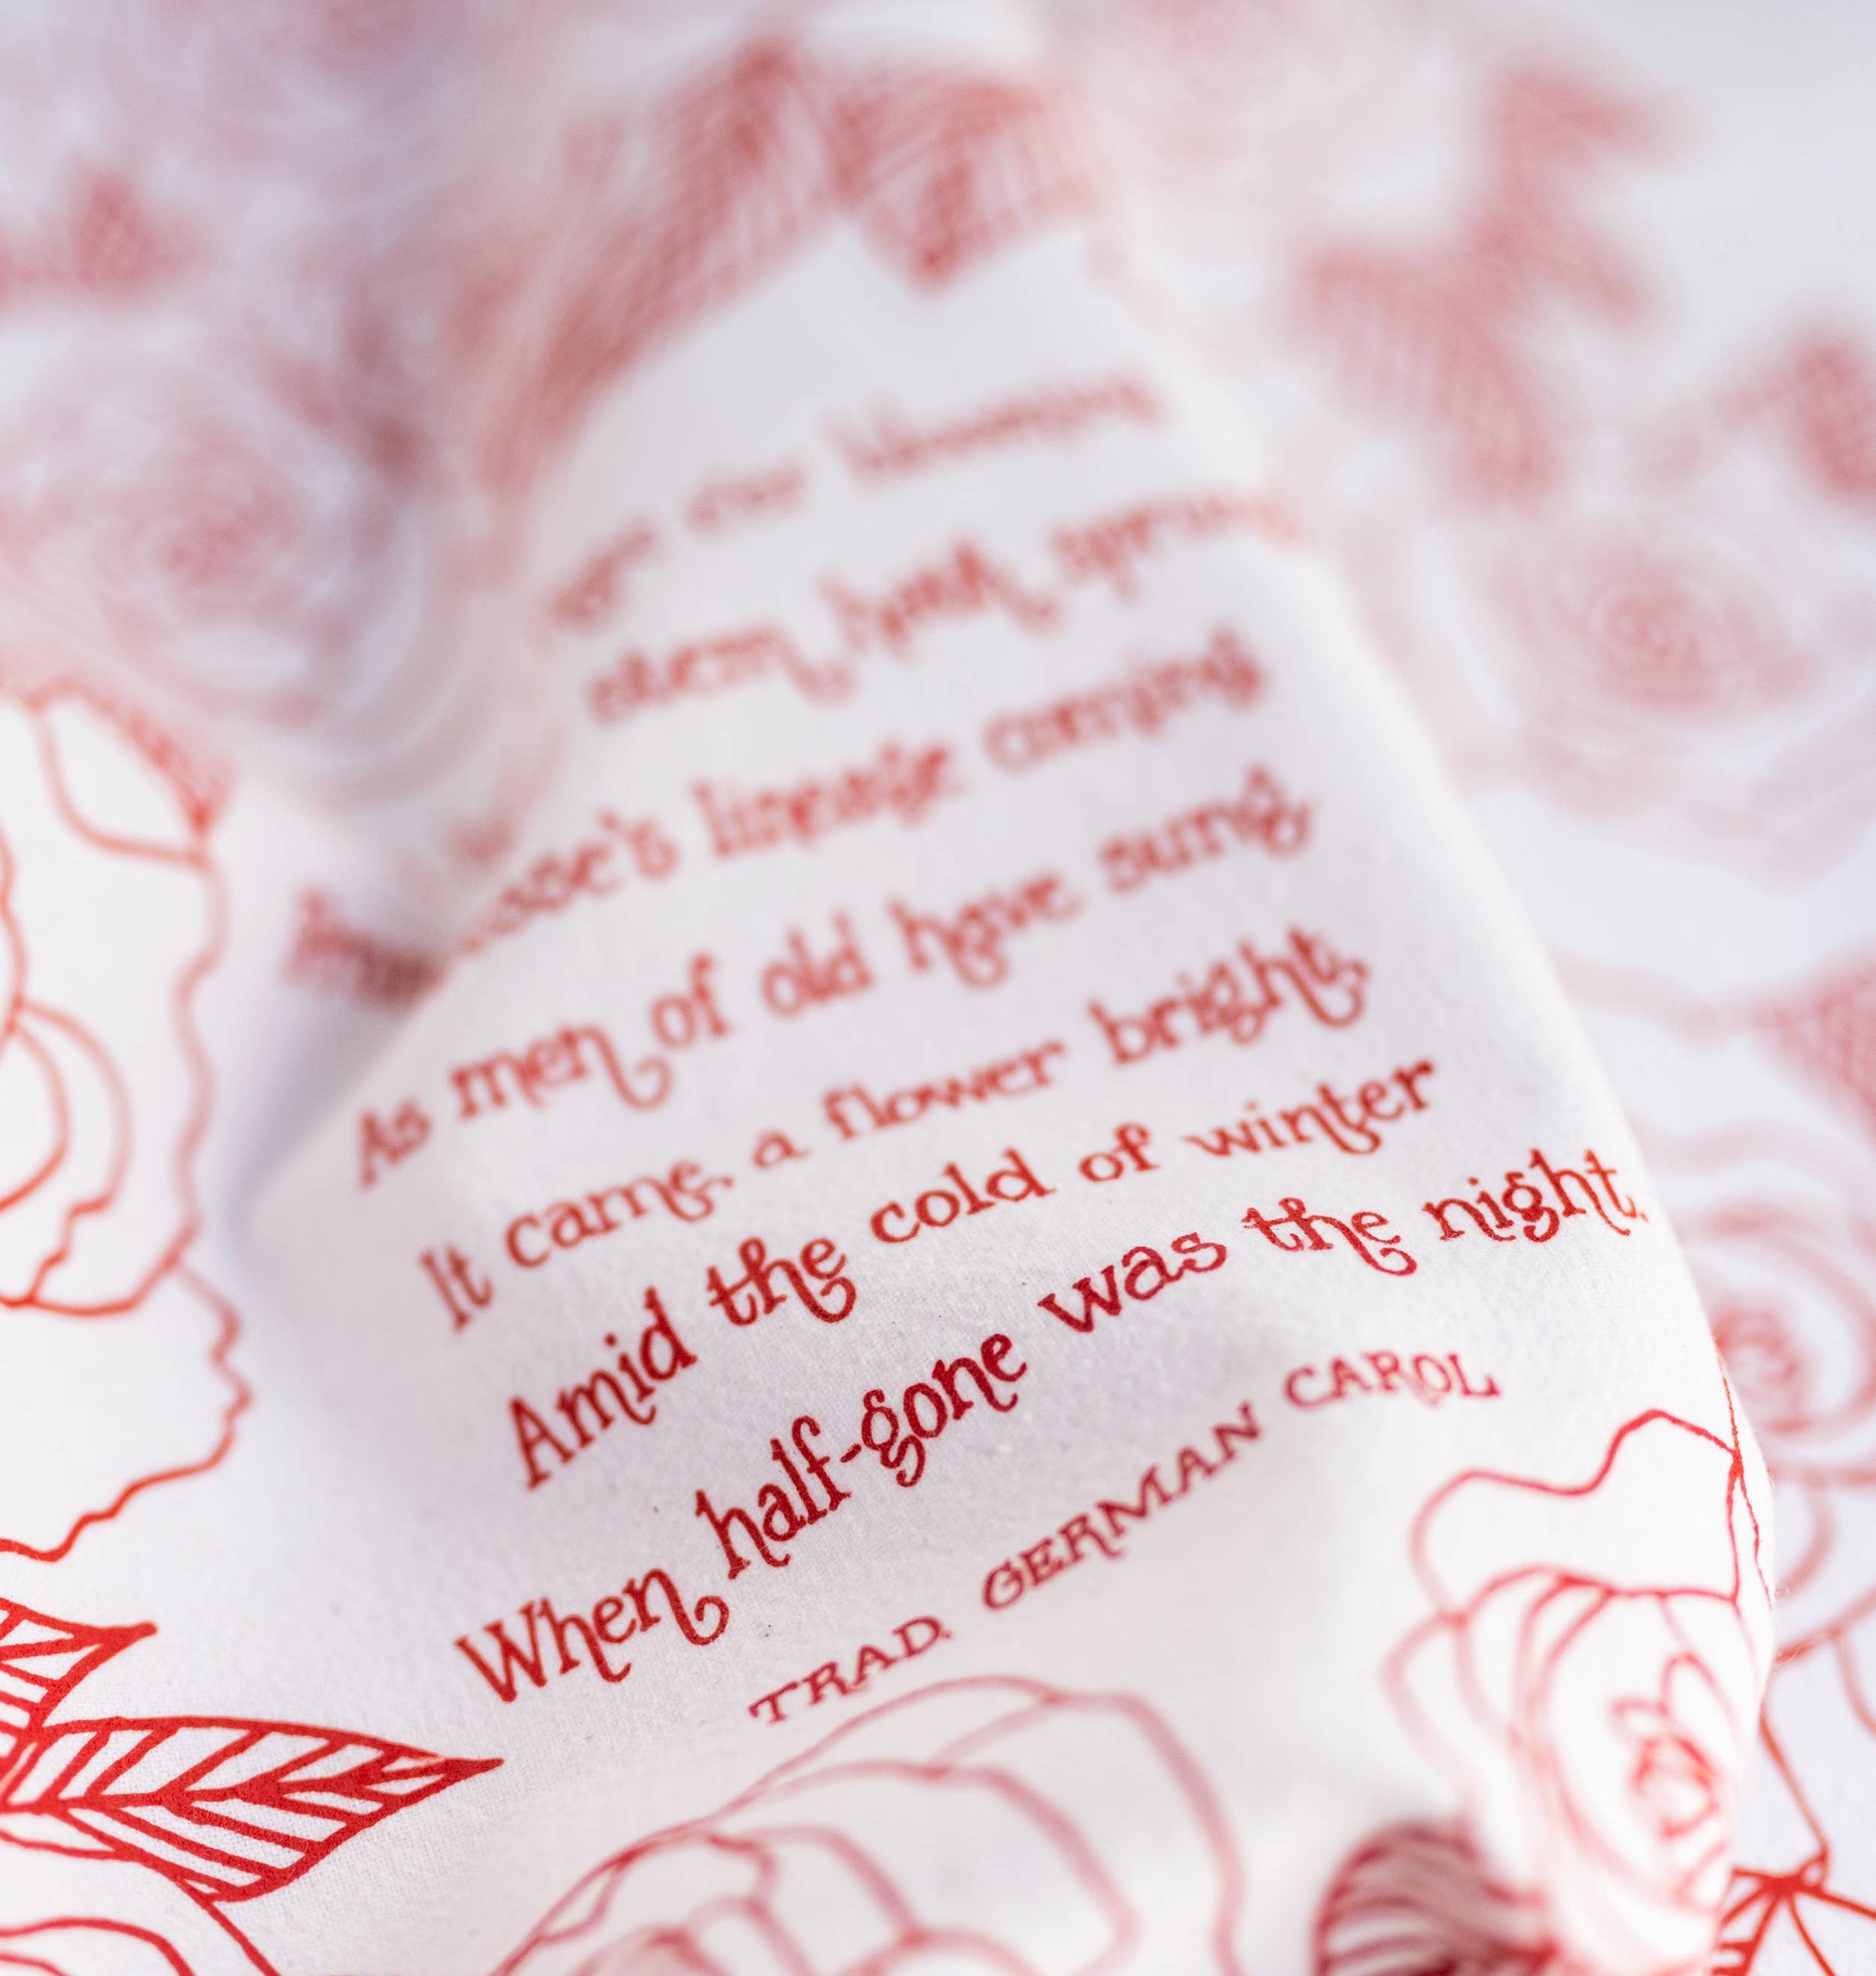 e'er blooming
stem hath sprung
lineage coming
As men of old have sung
It came, a flower bright,
Amid the cold of winter
When half-gone was the night.
TRAD. GERMAN CAROL